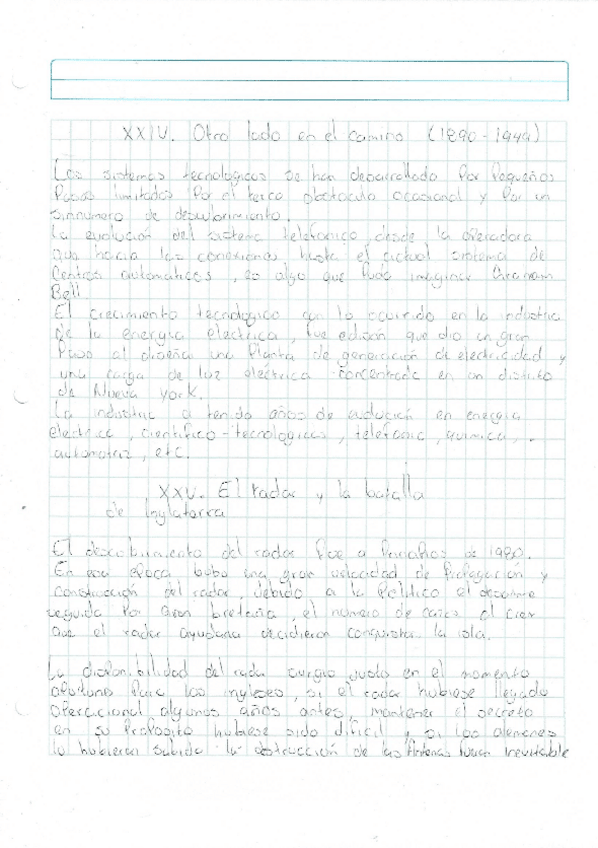 XXIV. Otro lado en el camino (1890-1944)
Los sistemas tecnologicos se han desarrollado por pequeños
pasos limitados por el terco obstaculo occasional y por un
sinnumero de descubrimiento.
La evolución del sistema telefonico desde la operadora
que hacia las conexiones hasta el actual sistema de
Centros automaticos, es algo que pudo imaginar Graham
Bell.
El crecimiento tecnologico con lo ocurrido en la industria
de la energia electrica, fue edison que dio un gran
paso al diseñar una planta de generación de electricidad y
una carga de luz electrica concentrada en un distrito
de Nueva York.
La industria a tenido años de evolución en energia
electrica, cientifico-tecnologicas, telefonic, quimica,
automotriz, etc.
XXV. El radar y la batalla
de Inglaterra
El descubrimiento del radar fue a principios de 1980.
En esa epoca hubo una gran velocidad de propagación y
construcción del radar, debido a la politica el desarme
seguida por Gran bretaña, el numero de casos al
que el radar ayudaria decidieron conquistar la isla.
La disponibilidad del radar surgio justo en el momento
oportuno para los ingleses, si el radar hubiese llegado
operacional algunos años antes, mantener el secreto
en su proposito hubiese sido dificil y si los alemanes
lo hubieran sabido la obstrucción de las Antenas inevitable